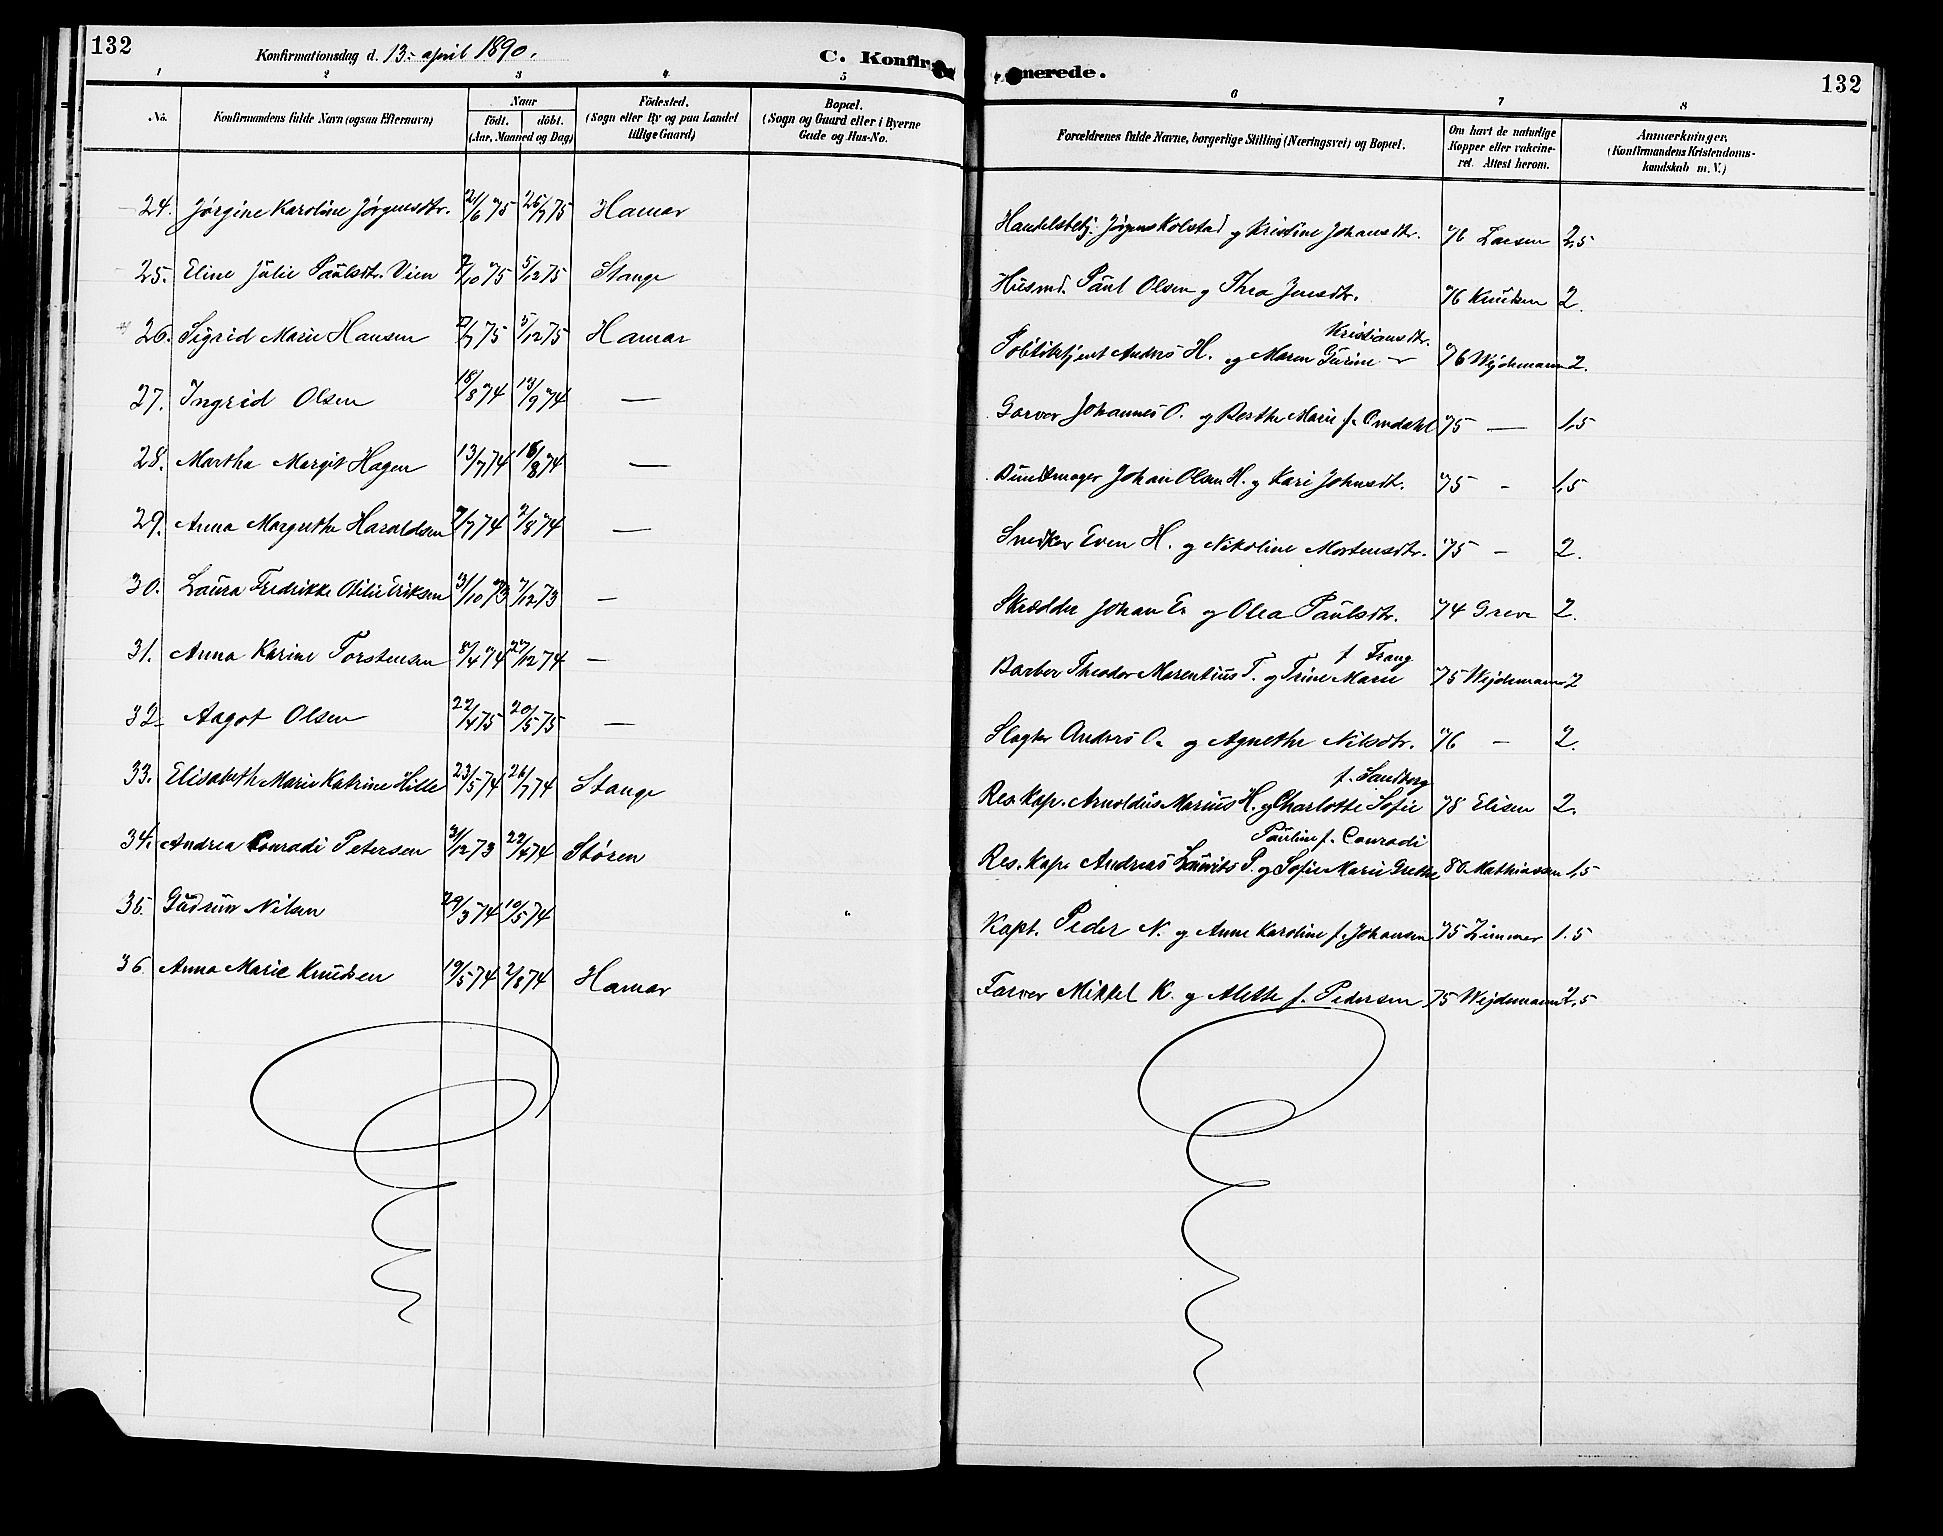 132
Konfirmationsdag d. 13. april 1890.
C. Konfir
1 2 3 4 5
No.
Konfirmandens fulde Navn (ogsaa Efternavn)
Naar
født. døbt.
(Aar, Maaned og Dag)
Fødested.
(Sogn eller By og paa Landet
tillige Gaard)
Bopæl.
(Sogn og Gaard eller i Byerne
Gade og Hus-No.
24. Jørgine Karoline Jørgensdtr. 21/6 75 25/7 75 Hamar
25. Eline Julie Paulsdtr. Vien 2/10 75 5/12 75 Stange
26. Sigrid Marie Hansen 2/7 75 5/12 75 Hamar
27. Ingrid Olsen 18/8 74 13/9 74 —
28. Martha Margit Hagen 13/7 74 16/8 74 —
29. Anna Margrethe Haraldsen 7/7 74 2/8 74 —
30. Laura Fredrikke Otilie Eriksen 31/10 73 7/12 73 —
31. Anna Karine Torstensen 8/4 74 27/12 74 —
32. Aagot Olsen 22/4 75 20/5 75 —
33. Elisabeth Marie Katrine Hille 23/5 74 26/7 74 Stange
34. Andrea Conradi Petersen 31/12 73 22/4 74 Støren
35. Gudrun Nilsen 29/3 74 10/5 74
36. Anna Marie Knudsen 19/5 74 2/8 74 Hamar
merede.
132
6 7 8
Forældrenes fulde Navne, borgerlige Stilling (Næringsvei) og Bopæl.
Om havt de naturlige
Kopper eller vakcine-
ret. Attest herom.
Anmærkninger,
(Konfirmandens Kristendoms-
kundskab m. V.)
Handelsbetj. Jørgen Kolstad og Kristine Johansdtr. 76 Larsen 2,5
Husmd. Paul Olsen og Thea Jensdtr. 76 Knudsen 2.
Kristiansdtr.
Politibetjent Anders H. og Maren Gurine 76 Wejdemann 2.
Garver Johannes O. og Berthe Marie f. Omdahl 75 — 1,5
Bundtmager Johan Olsen H. og Kari Johnsdt. 75 - 1,5
Snedker Even H. og Nikoline Mortensdtr. 75 - 2.
Skrædder Johan E. og Olea Paulsdtr. 74 Greve 2.
f. Frang
Barber Theodor Marentius T. og Trine Marie 75 Wejdemann 2
Slagter Anders O. og Agnethe Nilsdtr. 76 - 2.
f. Sandborg
Res. Kap. Arnoldus Marius H. og Charlotte Sofie 78 Elisen 2.
Pauline f. Conradi
Res. Kap. Andreas Lauvits P. og Sofie Marie Grethe 80. Mathiassen 1,5
Kapt. Peder N. og Anne Karoline f. Johansen 75 Zimmer 1.5
Farver Mikkel K. og Alette f. Pedersen 75 Wejdemann 2,5